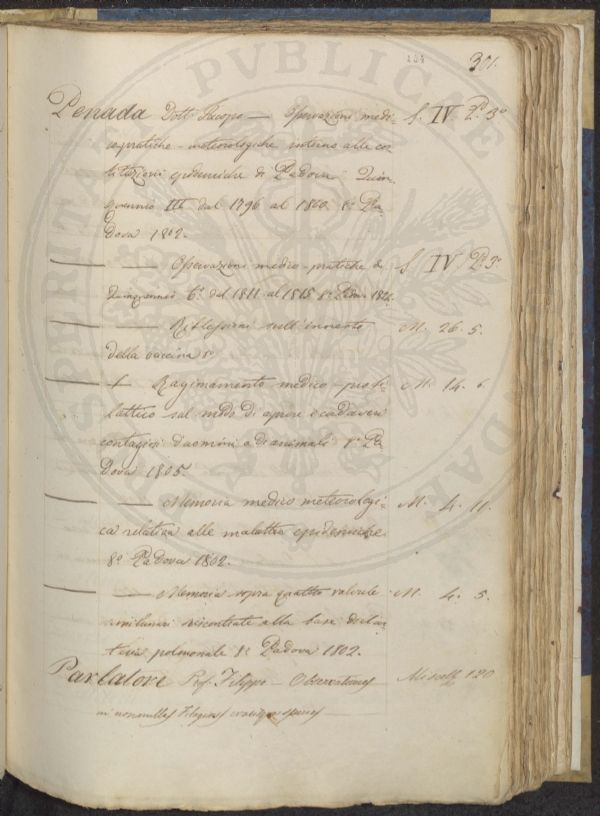 PVBLICAE
PROSPERITATI
301.
Penada Dott. Jacopo — Osservazioni medi- S. IV. P. 3ª
co pratiche - meteorologiche intorno alle co-
stituzioni epidemiche di Padova. Quin-
quennio III dal 1796 al 1800. 8º Pa-
dova 1802.
— — Osservazioni medico-pratiche di S. IV. P. 3ª
Quinquennio 6º dal 1811 al 1815 8º Padova
— — Riflessioni sull'innesto M. 26. 5.
della vaccina 8º
— + Ragionamento medico-profi- M. 14. 6
lattico sul modo di aprire i cadaveri
contagiosi d'uomini e di animali 8º Pa-
dova 1805.
— — Memoria medico meteorologi- M. 4. 11.
ca relativa alle malattie epidemiche
8º Padova 1802.
— — Memoria sopra quattro valvule M. 4. 5.
semilunari riscontrate alla base dell'ar-
teria polmonale 8º Padova 1802.
Parlatore Prof. Filippo — Observationes Miscell. 120
in nonnullas Filagines